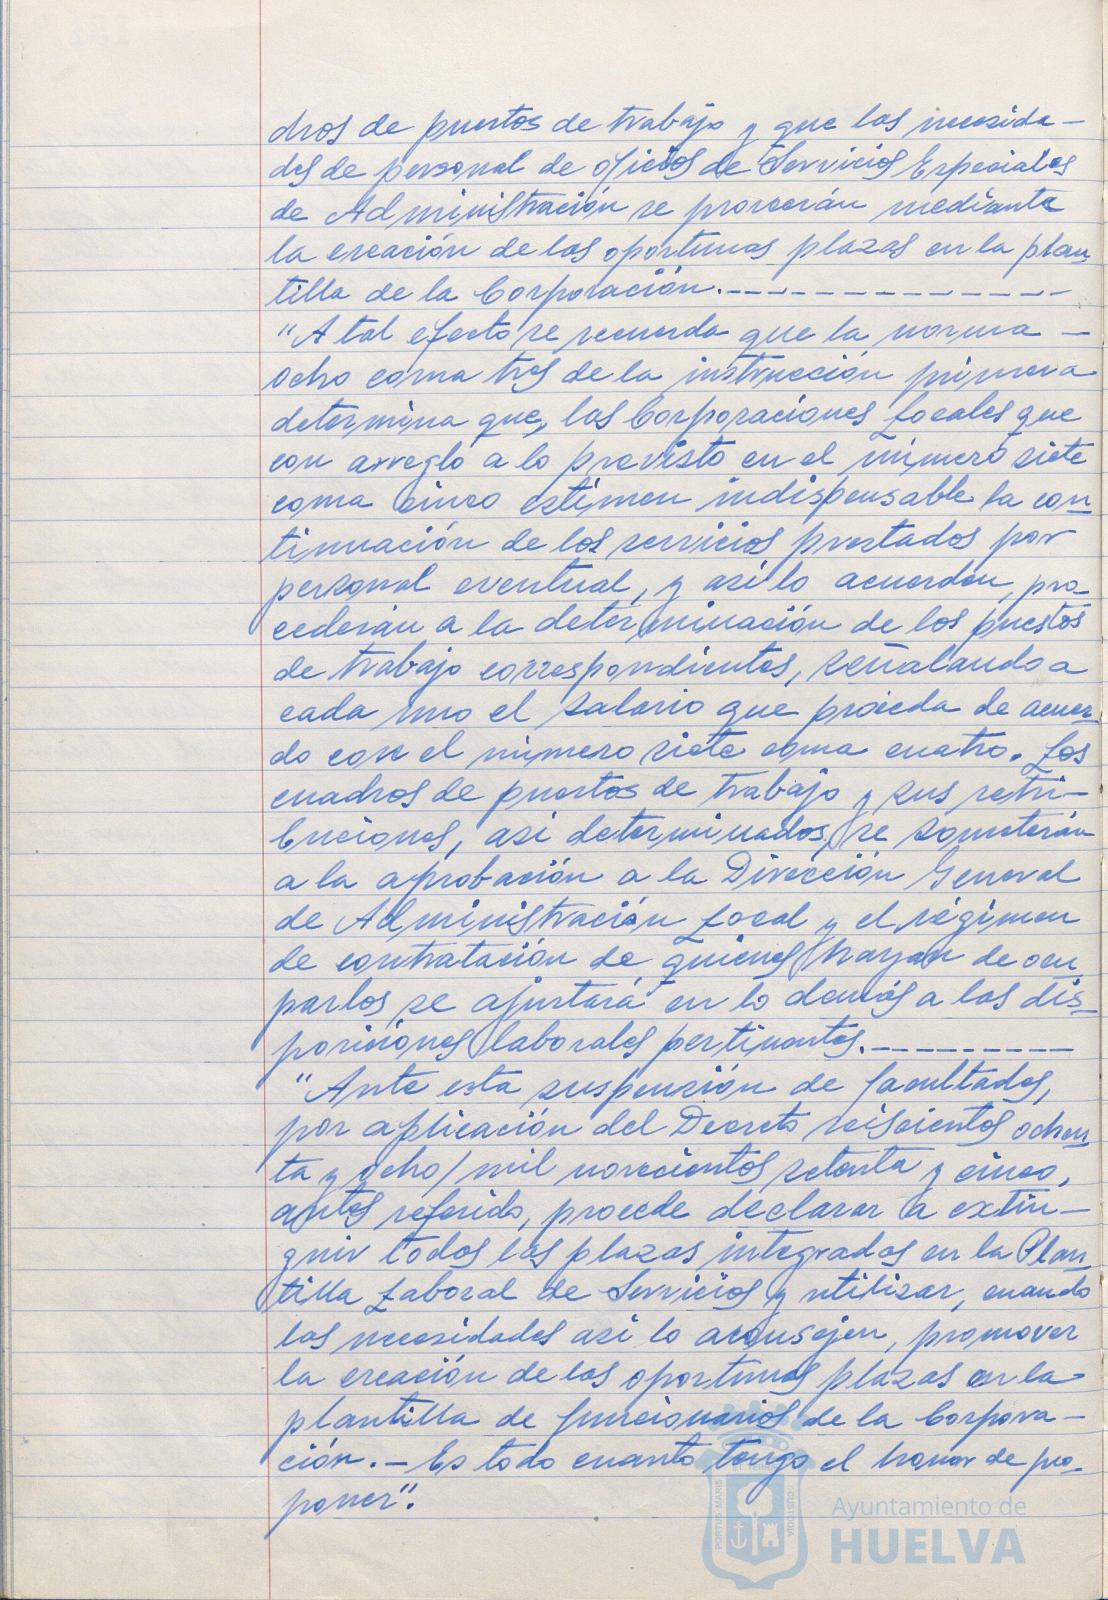 dros de puestos de trabajo y que las necesida-
des de personal de oficios de Servicios Especiales
de Administración se proveerán mediante
la creación de las oportunas plazas en la plan
tilla de la Corporación.-------------
"A tal efecto se recuerda que la norma -
ocho coma tres de la instrucción primera
determina que, las Corporaciones Locales que
con arreglo a lo previsto en el número siete
coma cinco estimen indispensable la con
tinuación de los servicios prestados por
personal eventual, y así lo acuerden, pro-
cederán a la determinación de los puestos
de trabajo correspondientes, señalando a
cada uno el salario que proceda de acuer
do con el número siete coma cuatro. Los
cuadros de puestos de trabajo y sus retri-
buciones, así determinados, se someterán
a la aprobación a la Dirección General
de Administración Local y el régimen
de contratación de quienes hayan de ocu
parlos se ajustará en lo demás a las dis-
posiciones laborales pertinentes.---------
"Ante esta suspensión de facultades,
por aplicación del Decreto seiscientos ochen
ta y ocho/mil novecientos setenta y cinco,
antes referido, procede declarar a extin-
guir todas las plazas integradas en la Plan
tilla Laboral de Servicios y utilizar, cuando
las necesidades así lo aconsejen, promover
la creación de las oportunas plazas en la
plantilla de funcionarios de la Corpora-
ción.- Es todo cuanto tengo el honor de pro-
poner".
PORTUS MARIS
CUSTODIA
Ayuntamiento de
HUELVA